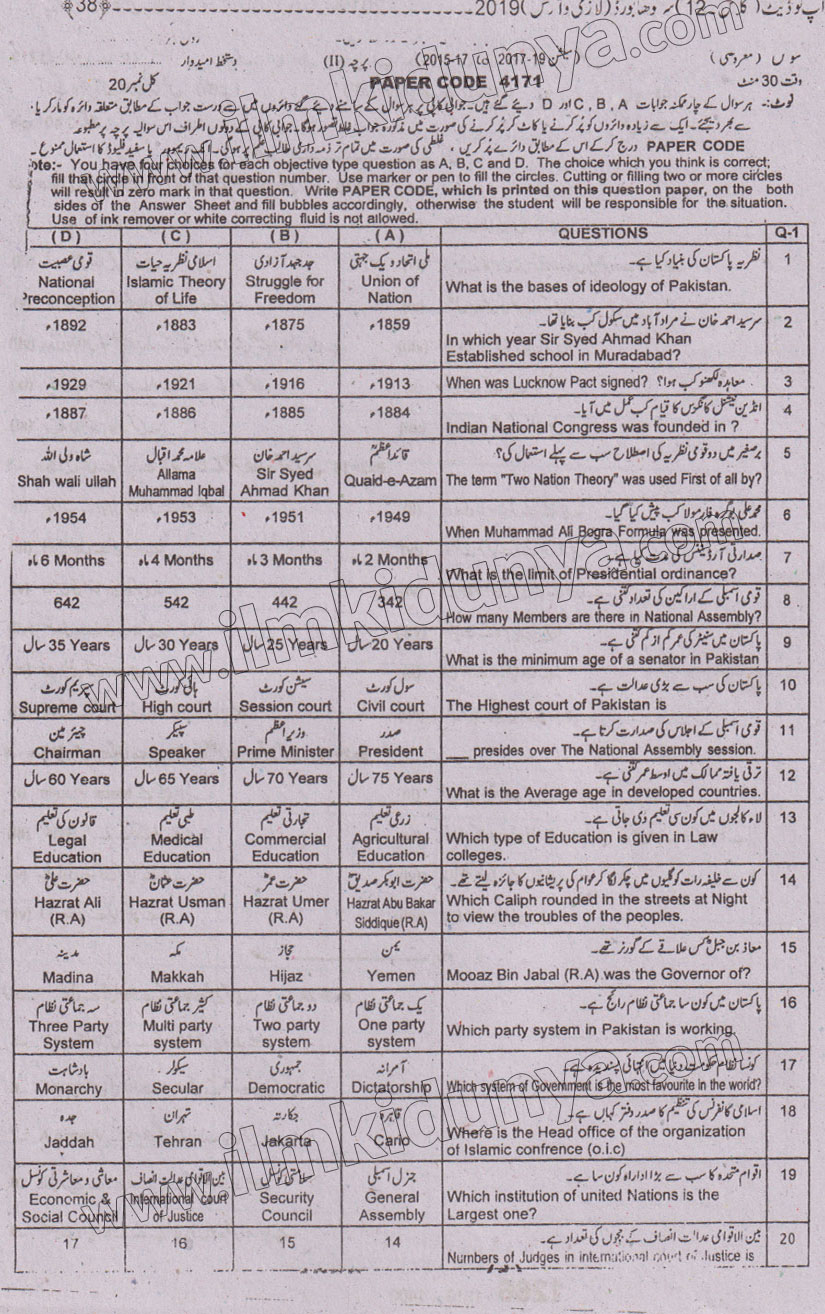 ﴿38﴾ 2019 (لازمی
سوس (معروضی) (سیشن 2015-17 to 2017-19) پرچہ (II) دستخط امیدوار
وقت 30 منٹ PAPER CODE 4171 کل نمبر 20
نوٹ:- ہر سوال کے چار ممکنہ جوابات A ، B ، C اور D دیئے گئے ہیں۔ جوابی کاپی پر ہر سوال کے سامنے دیئے گئے دائروں میں سے درست جواب کے مطابق متعلقہ دائرہ کو مارکر یا
سے بھر دیجئے۔ ایک سے زیادہ دائروں کو پُر کرنے یا کاٹ کر پُر کرنے کی صورت میں مذکورہ جواب غلط تصور ہوگا۔ جوابی کاپی کے دونوں اطراف اس سوالیہ پرچہ پر مطبوعہ
PAPER CODE درج کر کے اس کے مطابق دائرے پُر کریں، غلطی کی صورت میں تمام تر ذمہ داری طالب علم پر ہوگی۔ یا سفید فلیوڈ کا استعمال ممنوع
ote:- You have four choices for each objective type question as A, B, C and D. The choice which you think is correct;
fill that circle in front of that question number. Use marker or pen to fill the circles. Cutting or filling two or more circles
will result in zero mark in that question. Write PAPER CODE, which is printed on this question paper, on the both
sides of the Answer Sheet and fill bubbles accordingly, otherwise the student will be responsible for the situation.
Use of ink remover or white correcting fluid is not allowed.
( D ) ( C ) ( B ) ( A ) QUESTIONS Q-1
قومی عصبیت اسلامی نظریہ حیات جدوجہد آزادی ملی اتحاد و یک جہتی نظریہ پاکستان کی بنیاد کیا ہے۔ 1
National Islamic Theory Struggle for Union of What is the bases of ideology of Pakistan.
Preconception of Life Freedom Nation
1892ء 1883ء 1875ء 1859ء سرسید احمد خان نے مراد آباد میں سکول کب بنایا تھا۔ 2
In which year Sir Syed Ahmad Khan
Established school in Muradabad?
1929ء 1921ء 1916ء 1913ء When was Lucknow Pact signed? معاہدہ لکھنو کب ہوا؟ 3
1887ء 1886ء 1885ء 1884ء انڈین نیشنل کانگرس کا قیام کب عمل میں آیا۔ 4
Indian National Congress was founded in ?
شاہ ولی اللہ علامہ محمد اقبال سرسید احمد خان قائداعظمؒ برصغیر میں دو قومی نظریہ کی اصطلاح سب سے پہلے استعمال کی؟ 5
Shah wali ullah Allama Muhammad Iqbal Sir Syed Ahmad Khan Quaid-e-Azam The term "Two Nation Theory" was used First of all by?
1954ء 1953ء 1951ء 1949ء محمد علی بوگرہ فارمولا کب پیش کیا گیا۔ 6
When Muhammad Ali Bogra Formula was presented.
6 Months ماہ 4 Months ماہ 3 Months ماہ 2 Months ماہ صدارتی آرڈیننس کی مدت کیا ہے۔ 7
What is the limit of Presidential ordinance?
642 542 442 342 قومی اسمبلی کے اراکین کی تعداد کتنی ہے۔ 8
How many Members are there in National Assembly?
35 Years سال 30 Years سال 25 Years سال 20 Years سال پاکستان میں سنیٹر کی عمر کم از کم کتنی ہے۔ 9
What is the minimum age of a senator in Pakistan
سپریم کورٹ ہائی کورٹ سیشن کورٹ سول کورٹ پاکستان کی سب سے بڑی عدالت ہے۔ 10
Supreme court High court Session court Civil court The Highest court of Pakistan is
چیئرمین سپیکر وزیراعظم صدر قومی اسمبلی کے اجلاس کی صدارت کرتا ہے۔ 11
Chairman Speaker Prime Minister President ___ presides over The National Assembly session.
60 Years سال 65 Years سال 70 Years سال 75 Years سال ترقی یافتہ ممالک میں اوسط عمر کتنی ہے۔ 12
What is the Average age in developed countries.
قانون کی تعلیم طبی تعلیم تجارتی تعلیم زرعی تعلیم لاء کالجوں میں کون سی تعلیم دی جاتی ہے۔ 13
Legal Medical Commercial Agricultural Which type of Education is given in Law
Education Education Education Education colleges.
حضرت علیؓ حضرت عثمانؓ حضرت عمرؓ حضرت ابوبکر صدیقؓ کون سے خلیفہ رات کو گلیوں میں چکر لگا کر عوام کی پریشانیوں کا جائزہ لیتے تھے۔ 14
Hazrat Ali Hazrat Usman Hazrat Umer Hazrat Abu Bakar Which Caliph rounded in the streets at Night
(R.A) (R.A) (R.A) Siddique (R.A) to view the troubles of the peoples.
مدینہ مکہ حجاز یمن معاذ بن جبلؓ کس علاقے کے گورنر تھے۔ 15
Madina Makkah Hijaz Yemen Mooaz Bin Jabal (R.A) was the Governor of?
سہ جماعتی نظام کثیر جماعتی نظام دو جماعتی نظام یک جماعتی نظام پاکستان میں کون سا جماعتی نظام رائج ہے۔ 16
Three Party Multi party Two party One party Which party system in Pakistan is working.
System system system system
بادشاہت سیکولر جمہوری آمرانہ کونسا نظام حکومت دنیا میں انتہائی پسندیدہ ہے۔ 17
Monarchy Secular Democratic Dictatorship Which system of Government is the most favourite in the world?
جدہ تہران جکارتہ قاہرہ اسلامی کانفرنس کی تنظیم کا صدر دفتر کہاں ہے۔ 18
Jaddah Tehran Jakarta Cario Where is the Head office of the organization
of Islamic confrence (o.i.c)
معاشی و معاشرتی کونسل بین الاقوامی عدالت انصاف سلامتی کونسل جنرل اسمبلی اقوام متحدہ کا سب سے بڑا ادارہ کون سا ہے۔ 19
Economic & International court Security General Which institution of united Nations is the
Social Council of Justice Council Assembly Largest one?
17 16 15 14 بین الاقوامی عدالت انصاف کے ججوں کی تعداد ہے۔ 20
Numbers of Judges in international court of Justice is
www.ilmkidunya.com
www.ilmkidunya.com
www.ilmkidunya.com